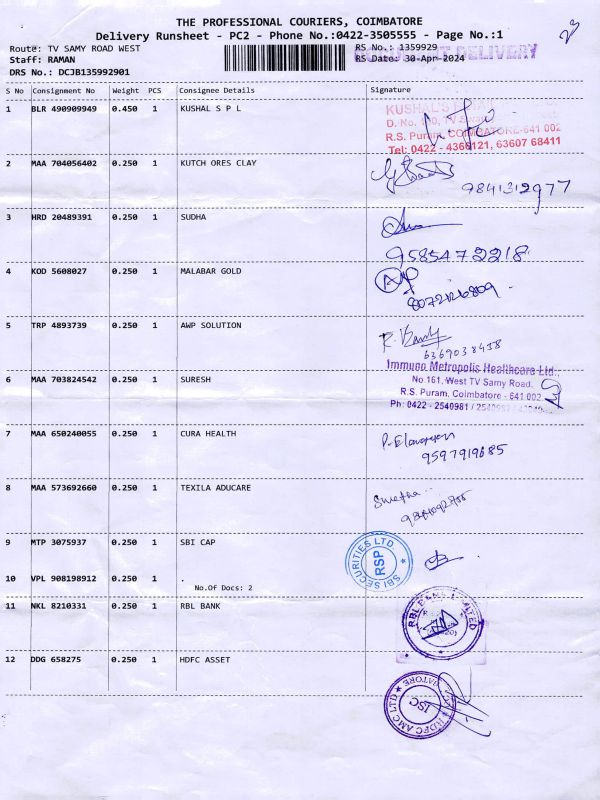 THE PROFESSIONAL COURIERS, COIMBATORE
Delivery Runsheet - PC2 - Phone No.:0422-3505555 - Page No.:1
Route: TV SAMY ROAD WEST
RS No.: 1359929
DELIVERY
Staff: RAMAN
RS Date: 30-Apr-2024
DRS No.: DCJB135992901
S No Consignment No Weight PCS Consignee Details Signature
1 BLR 490909949 0.450 1 KUSHAL S P L
KUSHAL'S
R.S. Puram, COIMBATORE-641 002
Tel: 0422 - 4366121, 63607 68411
2 MAA 704056402 0.250 1 KUTCH ORES CLAY
9841312977
3 HRD 20489391 0.250 1 SUDHA
9585472218
4 KOD 5608027 0.250 1 MALABAR GOLD
5 TRP 4893739 0.250 1 AWP SOLUTION
6369038458
Immuno Metropolis Healthcare Ltd.,
6 MAA 703824542 0.250 1 SURESH
No 161, West TV Samy Road,
R.S. Puram, Coimbatore - 641 002.
Ph: 0422 - 2540981 /
7 MAA 650240055 0.250 1 CURA HEALTH
9597919685
8 MAA 573692660 0.250 1 TEXILA ADUCARE
Swetha..
9 MTP 3075937 0.250 1 SBI CAP
SBI SECURITIES LTD.
RSP
10 VPL 908198912 0.250 1 .
No.Of Docs: 2
11 NKL 8210331 0.250 1 RBL BANK
RBL BANK LIMITED
12 DDG 658275 0.250 1 HDFC ASSET
HDFC AMC LTD
ISC